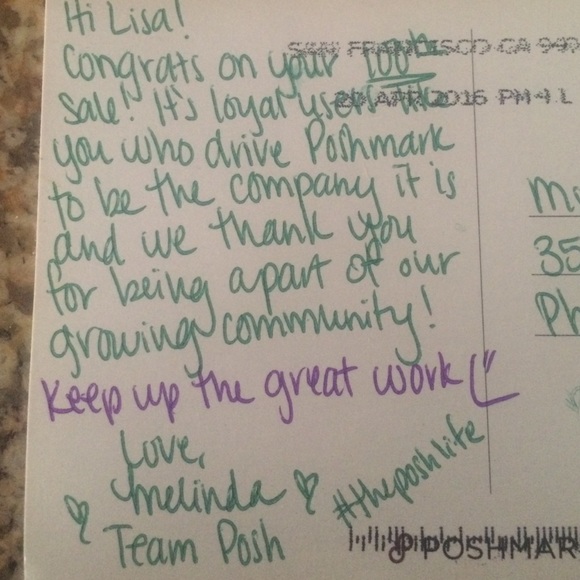 Hi Lisa!
Congrats on your 100th
sale! It's loyal users like
you who drive Poshmark
to be the company it is
and we thank you
for being apart of our
growing community!
Keep up the great work (¨
Love,
Melinda
Team Posh
#theposhlife
SAN FRANCISCO CA 940
20 APR 2016 PM 4 L
35
Ph
POSHMAR